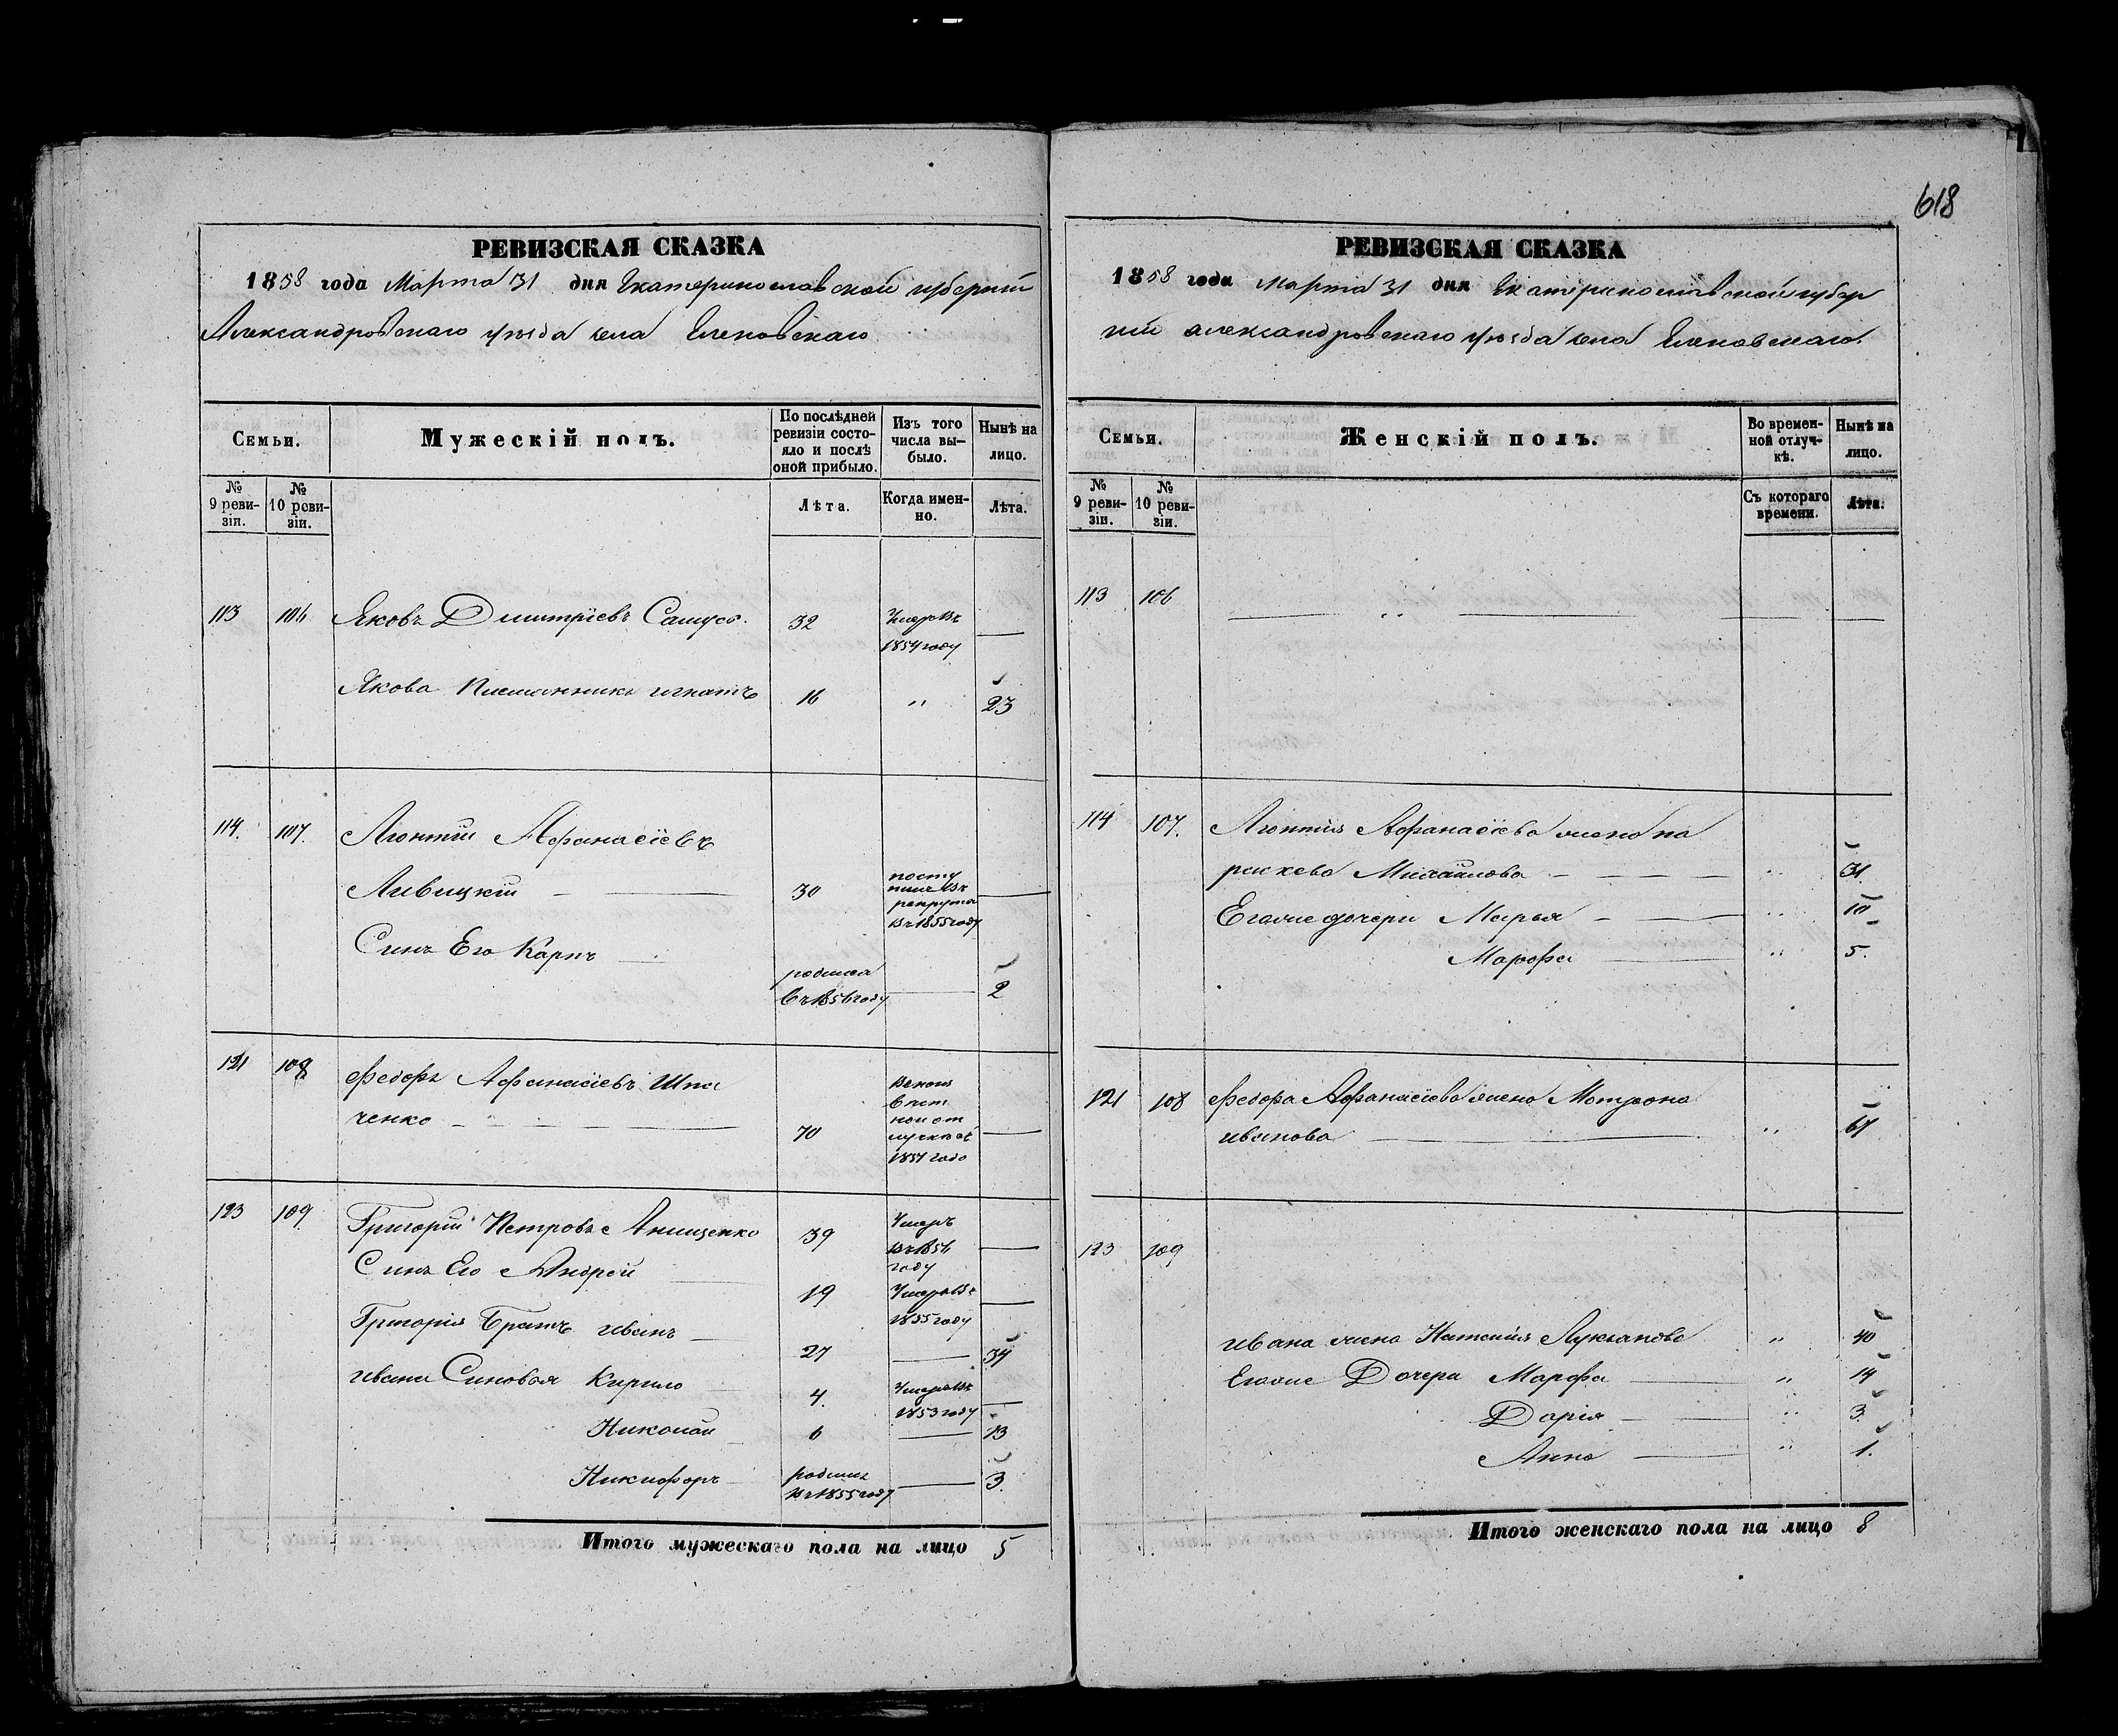 618
РЕВИЗСКАЯ СКАЗКА
1858 года Марта 31 дня Екатеринославской губернии
Александровскаго уезда села Еленовскаго
Семьи.
Мужескій полъ.
По послѣдней ревизіи состояло и послѣ оной прибыло.
Изъ того числа выбыло.
Нынѣ на лицо.
№ 9 ревизіи.
№ 10 ревизіи.
Лѣта.
Когда именно.
Лѣта.
113 106 Яковъ Дмитріевъ Самусь. 32 Умеръ въ
1854 году
Якова Племянникъ игнатъ 16 " 23
114. 107. Афанасіевъ
30 посту
пилъ въ
рекруты
въ 1855 году
Синъ Его Карпъ
родился
въ 1856 году 2
121 108 Федоръ Афанасіевъ Шпа
ченко 70
1857 года
123 109 Григорій Петровъ Анищенко 39 Умеръ
въ 1856
году
Синъ Его Андрей 19 Умеръ въ
1855 году
Григорія Братъ иванъ 27 34
ивана Синовья Кирило 4. Умеръ въ
1853 году
Николай 6 13
Никифоръ родился
въ 1855 году 3.
Итого мужескаго пола на лицо 5
РЕВИЗСКАЯ СКАЗКА
1858 года Марта 31 дня Екатеринославской губер
нии александровскаго уезда села Еленовскаго.
Семьи.
Женскій полъ.
Во временной отлучкѣ.
Нынѣ на лицо.
№ 9 ревизіи.
№ 10 ревизіи.
Съ котораго времени.
Лѣта.
113 106 "
114 107. Афанасіева жена па
раскева Михайлова " 31.
Егоже дочери Марья " 10
Марфа " 5.
121 108 Федора Афанасіева жена Мотрона
иванова " 67
123 109
ивана жена Наталія Лукьянова " 40
Егоже Дочери Марфа " 14
Дарія " 3.
Анна " 1.
Итого женскаго пола на лицо 8